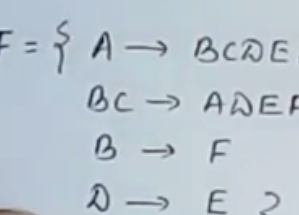 F = { A → BCDE
BC → ADEF
B → F
D → E }